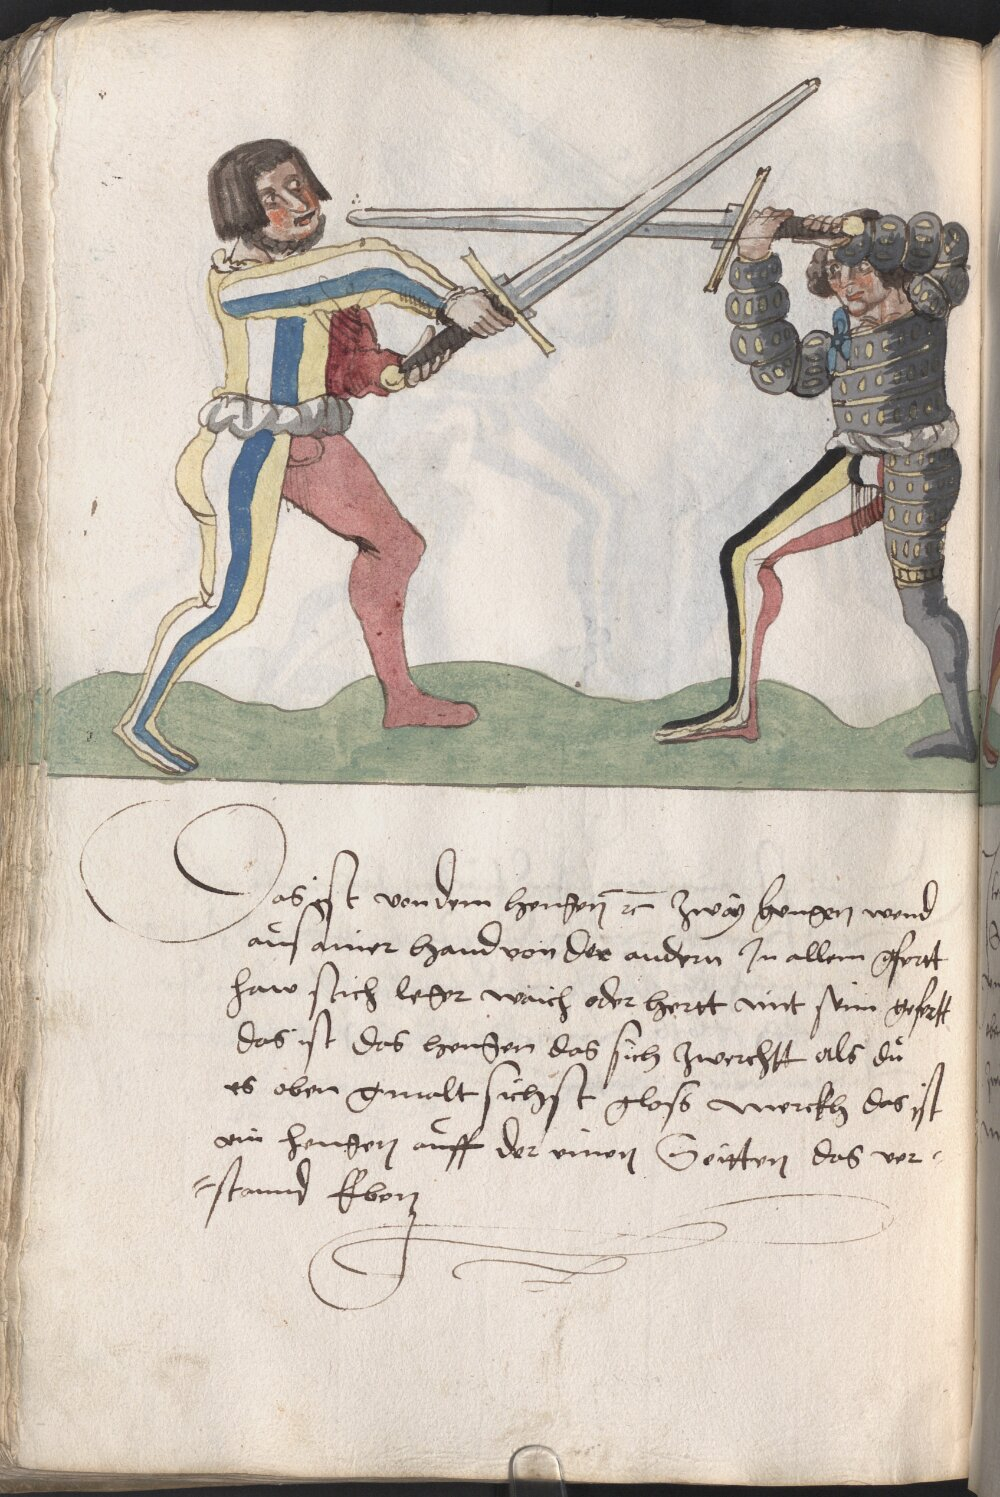 Das ist von dem hengen rc zwaÿ hengen wend
aus ainer hand von der andern In allem gfertt
haw stich leger waich oder hertt mit seim gefertt
das ist das hengen das sich zwerchtt als dü
es oben gmalt sichst gloss merckh das ist
ein hengen auff der einen Seitten das ver-
-stannd Eben